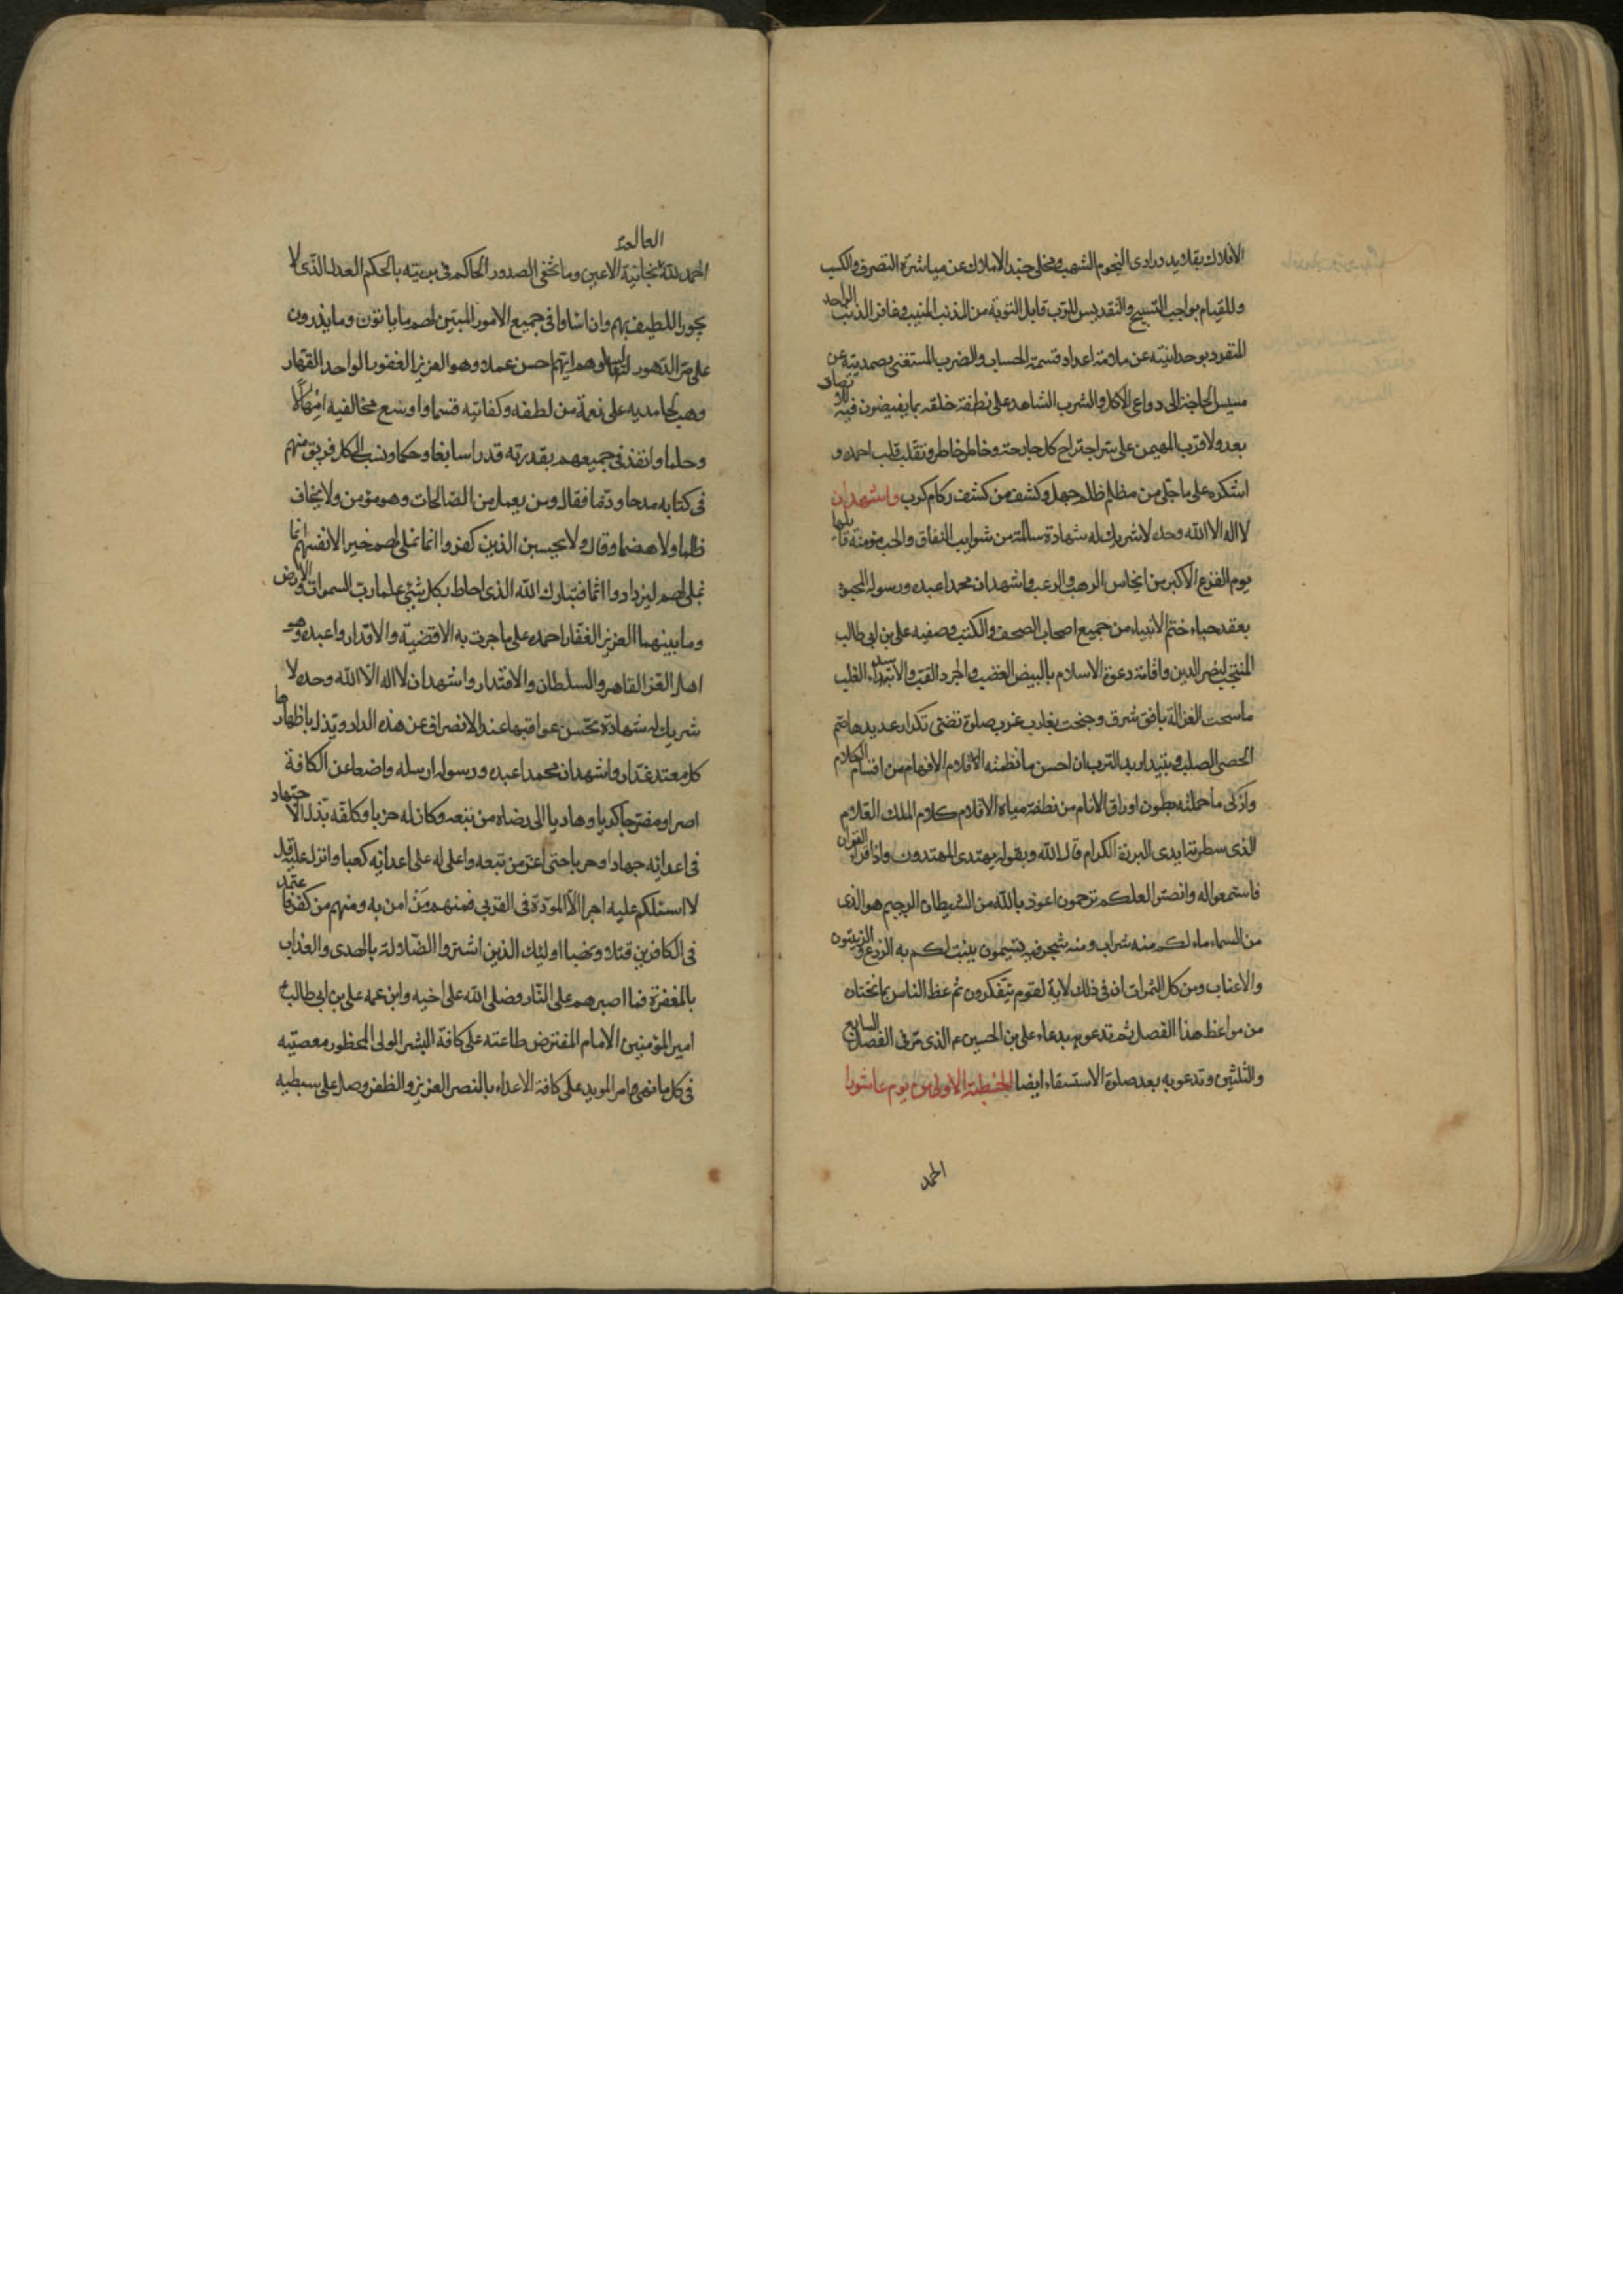 الافلاك بقلائد درارى النجوم الشهب ومخلى جنبد الاملاك عن مباشرة التصرف والكسب
وللقيام بواجب التسبيح والتقديس للرب قابل التوبة من المذنب المنيب وغافر الذنب الواحد
المتفرد بوحدانيته عن ملامة اعداد قسمة الحساب والضرب المستغنى بصمديته عن
مسيس الحاجة الى دواعى الاكل والشرب الشاهد على نطفة خلقه بما يفيضون فيه
بعد ولا قرب المهيمن على سر اجتراح كل جارحة وخاطر خاطر وتقلب قلب احمده و
اشكره على ما جلى من مظلم ظلم جهل وكشف من كشف ركام كرب واشهد ان
لا اله الا الله وحده لا شريك له شهادة سالمة من شوايب النفاق والخب مؤمنة قائلها
يوم الفزع الاكبر من الرهب والرعب واشهد ان محمدا عبده ورسوله المحبو
بعقد حباء ختم الانبياء من جميع اصحاب الصحف والكتب وصفيه على بن ابى طالب
المنتجب لنصر الدين واقامة دعوة الاسلام بالبيض العضب والجرد القب والاسد الغلب
ما سبحت الغزالة بافق شرق وجنحت بغارب غرب صلوة تفضى تكرار عديدها صم
الحصى الصلب وتبيد اربد الترب ان احسن ما نظمته الاقلام الافهام من اقسام الكلام
وازكى ما حملته بطون اوراق الانام من نطفة مياه الاقلام كلام الملك العلام
الذى سطرته ايدى البررة الكرام قال الله وبقوله يهتدى المهتدون واذا قرئ القران
فاستمعوا له وانصتوا لعلكم ترحمون اعوذ بالله من الشيطان الرجيم هو الذى
من السماء ماء لكم منه شراب ومنه شجر فيه تسيمون ينبت لكم به الزرع والزيتون
والاعناب ومن كل الثمرات ان فى ذلك لاية لقوم يتفكرون ثم عظ الناس بما تختان
من مواعظ هذا الفصل ثم تدعو بدعاء على بن الحسين ع الذى مر فى الفصل السابع
والثلثين وتدعو به بعد صلوة الاستسقاء ايضا الخطبة الاولى من يوم عاشورا
الحمد
الحمد لله العالم بخائنة الاعين وما تخفى الصدور الحاكم فى بريته بالحكم العدل الذى لا
يجور اللطيف بهم وان اشاوا فى جميع الامور المبين لهم ما ياتون وما يذرون
على مر الدهور ايهم احسن عملا وهو العزيز الغفور الواحد القهار
وهب لحامديه على نعمة من لطفه وكفايته قسما واوسع مخالفيه امهالا
وحلما وانفذ فى جميعهم بقدرته قدرا سابغا وحكما ونسب الى كل فريق منهم
فى كتابه مدحا وذما فقال ومن يعمل من الصالحات وهو مؤمن ولا يخاف
ظلما ولا هضما وقال ولا يحسبن الذين كفروا انما نملى لهم خير الانفسهم انما
نملى لهم ليزدادوا اثما فتبارك الله الذى احاط بكل شئ علما رب السموات والارض
وما بينهما العزيز الغفار احمده على ما جرت به الاقضية والاقدار واعبده وهو
اهل العز القاهر والسلطان والاقتدار واشهد ان لا اله الا الله وحده لا
شريك له شهادة تحسن عواقبها عند الانصراف عن هذه الدار ويذل باظهارها
كل معتد غدار واشهد ان محمدا عبده ورسوله ارسله واضعا عن الكافة
اصرا وهاديا الى رضاه من تبعه وكان له حزبا وكلفه بذل الاجتهاد
فى اعدائه جهادا وحربا حتى اعز من تبعه واعلى له على اعدائه كعبا وانزل عليه قل
لا اسئلكم عليه اجرا الا المودة فى القربى فمنهم من امن به ومنهم من كفر فاعتمد
فى الكافرين قتلا ونهبا اولئك الذين اشتروا الضلالة بالهدى والعذاب
بالمغفرة فما اصبرهم على النار وصلى الله على اخيه وابن عمه على بن ابى طالب
امير المؤمنين الامام المفترض طاعته على كافة البشر الولى المحظور معصيته
فى كل ما نهى وامر المويد على كافة الاعداء بالنصر العزيز والظفر وصل على سبطيه